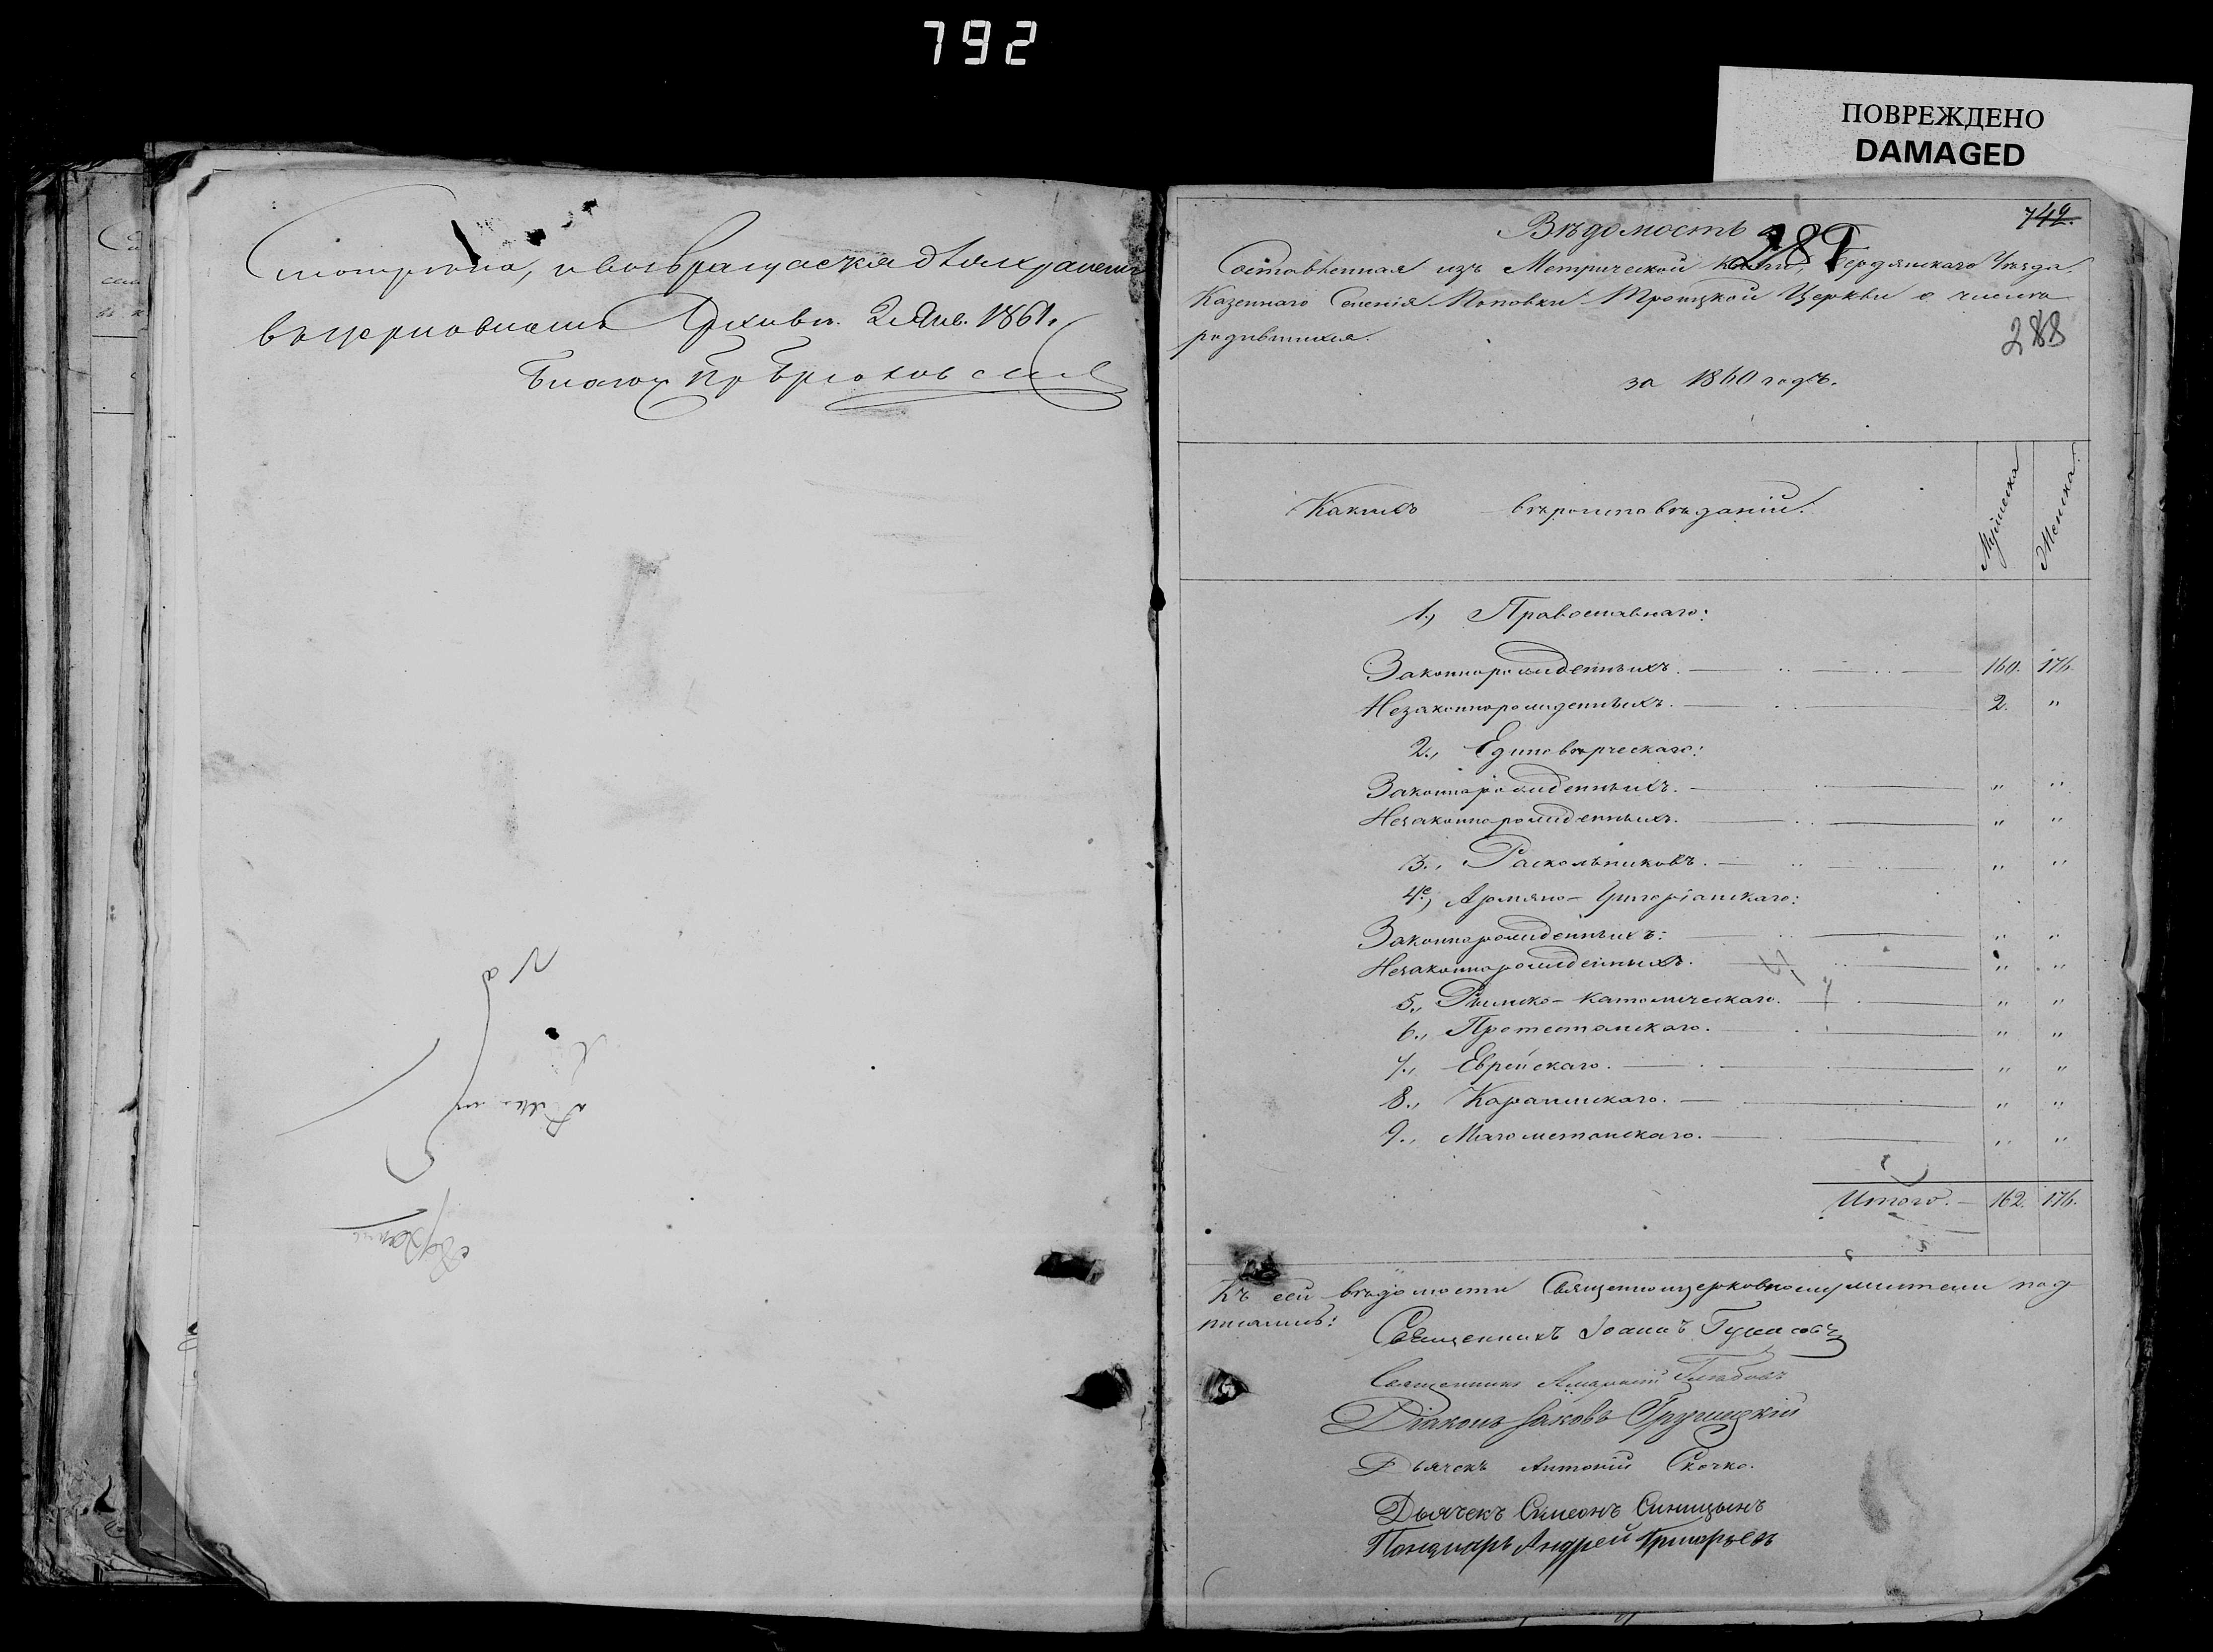 792
ПОВРЕЖДЕНО
DAMAGED
Смотрѣна, и возвращается для храненія
въ церковномъ Архивѣ. 2 Янв. 1861.
742.
Вѣдомость
289
Составленная изъ Метрической Бердянскаго Уѣзда.
Казеннаго Селенія Поповки Троицкой Церкви о числѣ
родившихся.
288
за 1860 годъ.
Какихъ вѣроисповѣданій.
Мужеска
Женска.
1., Православнаго:
Законнорожденныхъ. 160. 176.
Незаконнорожденныхъ. 2. "
2., Единовѣрческаго:
Законнорожденныхъ. " "
Незаконнорожденныхъ. " "
3., Раскольниковъ. " "
4е, Армяно-Григоріанскаго:
Законнорожденныхъ: " "
Незаконнорожденныхъ. " "
5., Римско-Католическаго. " "
6., Протестанскаго. " "
7., Еврейскаго. " "
8., Караимскаго. " "
9., Магометанскаго. " "
Итого. 162. 176.
Къ сей вѣдомости Священноцерковнослужители под
писались:
Священникъ Іоаннъ
Священникъ
Діаконъ Іаковъ
Дьячекъ Антоній Скочко.
Дьячекъ Симеонъ Синицынъ
Пономарь Андрей Григорьевъ